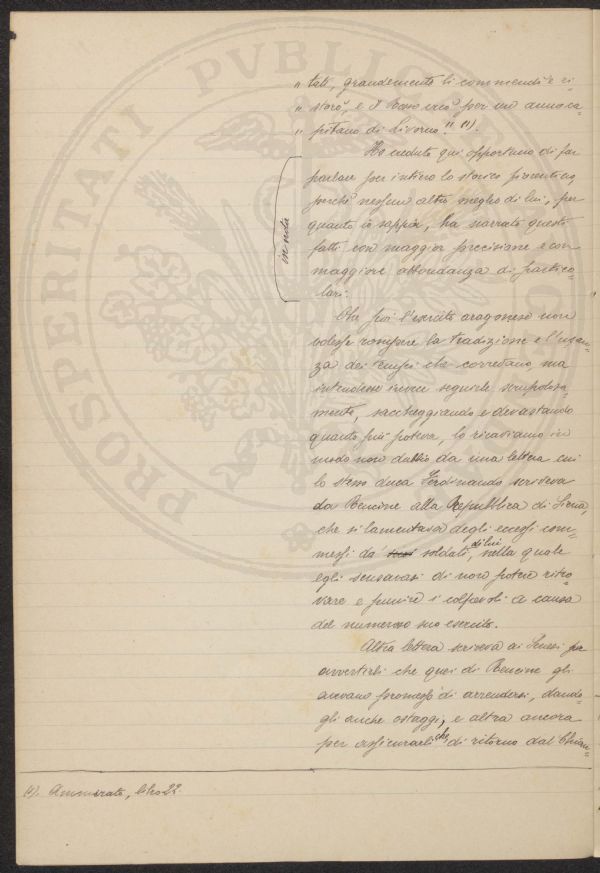 " tati, grandemente li commendò e ri-
" storò, e il Rosso creò per un anno ca-
" pitano di Livorno." (1).
Ho creduto qui opportuno di far
parlare per intiero lo storico fiorentino,
perchè nessun altro meglio di lui, per
quanto io sappia, ha narrato questi
fatti con maggior precisione e con
maggiore abbondanza di partico-
lari.
in nota
Che poi l'esercito aragonese non
volesse rompere la tradizione e l'usan-
za dei tempi che correvano, ma
intendesse invece seguirle scrupolosa-
mente, saccheggiando e devastando
quanto più poteva, lo ricaviamo in
modo non dubbio da una lettera cui
lo stesso duca Ferdinando scriveva
da Rencine alla Repubblica di Siena,
che si lamentava degli eccessi com-
messi da' suoi soldati di lui, nella quale
egli scusavasi di non potere ritro-
vare e punire i colpevoli a causa
del numeroso suo esercito.
Altra lettera scriveva ai Senesi per
avvertirli che quei di Rencine gli
avevano promesso di arrendersi, dando-
gli anche ostaggi, e altra ancora
per assicurarli che di ritorno dal Chian-
(1). Ammirato, libro 22.
PROSPERITATI PVBLICAE